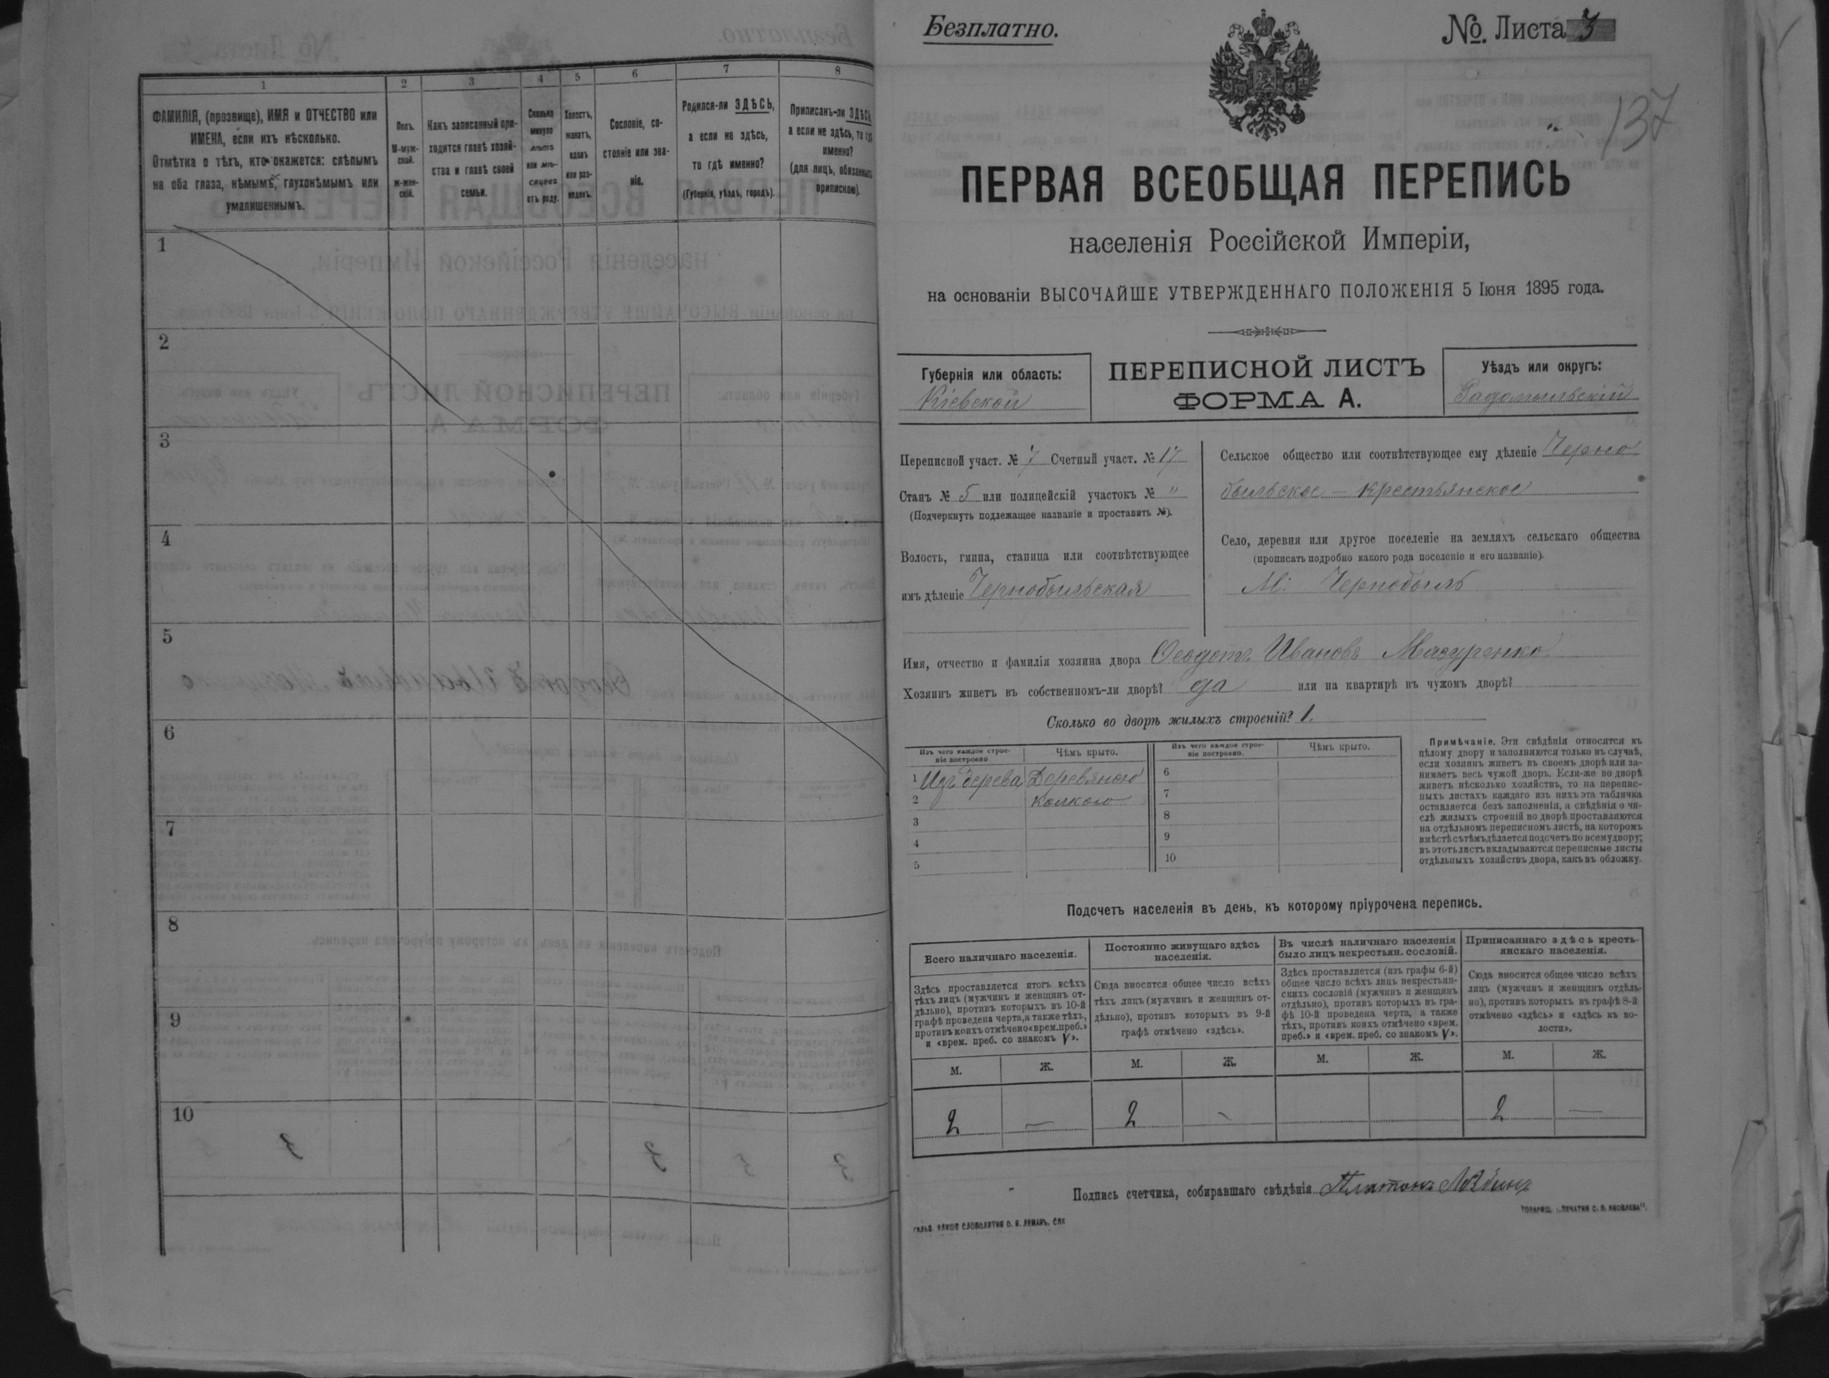 1
2
3
4
5
6
7
8
ФАМИЛІЯ, (прозвище), ИМЯ и ОТЧЕСТВО или
ИМЕНА, если ихъ нѣсколько.
Отмѣтка о тѣхъ, кто окажется: слѣпымъ
на оба глаза, нѣмымъ, глухонѣмымъ или
умалишеннымъ.
Полъ.
М-муж-
ской.
Ж-жен-
скій.
Какъ записанный при-
ходится главѣ хозяй-
ства и главѣ своей
семьи.
Сколько
минуло
лѣтъ
или мѣ-
сяцевъ
отъ роду.
Холостъ,
женатъ,
вдовъ
или раз-
веденъ.
Сословіе, со-
стояніе или зва-
ніе.
Родился-ли ЗДѢСЬ,
а если не здѣсь,
то гдѣ именно?
(Губернія, уѣздъ, городъ).
Приписанъ-ли ЗДѢСЬ,
а если не здѣсь, то гдѣ
именно?
(для лицъ, обязанныхъ
припискою).
1
2
3
4
5
6
7
8
9
10
Безплатно.
№. Листа 3
137
ПЕРВАЯ ВСЕОБЩАЯ ПЕРЕПИСЬ
населенія Россійской Имперіи,
на основаніи ВЫСОЧАЙШЕ УТВЕРЖДЕННАГО ПОЛОЖЕНІЯ 5 Іюня 1895 года.
Губернія или область:
Кіевской
ПЕРЕПИСНОЙ ЛИСТЪ
ФОРМА А.
Уѣздъ или округъ:
Радомысльскій
Переписной участ. № 7 Счетный участ. № 17
Станъ № 5 или полицейскій участокъ № "
(Подчеркнуть подлежащее названіе и проставить №).
Волость, гмина, станица или соотвѣтствующее
имъ дѣленіе Чернобыльская
Сельское общество или соотвѣтствующее ему дѣленіе Черно
быльское – крестьянское
Село, деревня или другое поселеніе на земляхъ сельскаго общества
(прописать подробно какого рода поселеніе и его названіе).
М: Чернобыль
Имя, отчество и фамилія хозяина двора Ѳеодотъ Ивановъ Мазуренко
Хозяинъ живетъ въ собственномъ-ли дворѣ? да или на квартирѣ въ чужомъ дворѣ?
Сколько во дворѣ жилыхъ строеній? 1.
Изъ чего каждое строе-
ніе построено
Чѣмъ крыто.
Изъ чего каждое строе-
ніе построено.
Чѣмъ крыто.
1 Изъ дерева Деревяною
2 колкою
3
4
5
6
7
8
9
10
Примѣчаніе. Эти свѣдѣнія относятся къ
цѣлому двору и заполняются только въ случаѣ,
если хозяинъ живетъ въ своемъ дворѣ или за-
нимаетъ весь чужой дворъ. Если-же во дворѣ
живетъ нѣсколько хозяйствъ, то на перепис-
ныхъ листахъ каждаго изъ нихъ эта табличка
оставляется безъ заполненія, а свѣдѣнія о чи-
слѣ жилыхъ строеній во дворѣ проставляются
на отдѣльномъ переписномъ листѣ, на которомъ
вмѣстѣ съ тѣмъ дѣлается подсчетъ по всему двору;
въ этотъ листъ вкладываются переписные листы
отдѣльныхъ хозяйствъ двора, какъ въ обложку.
Подсчетъ населенія въ день, къ которому пріурочена перепись.
Всего наличнаго населенія.
Здѣсь проставляется итогъ всѣхъ
тѣхъ лицъ (мужчинъ и женщинъ от-
дѣльно), противъ которыхъ въ 10-й
графѣ проведена черта, а также тѣхъ,
противъ коихъ отмѣчено «врем. преб.»
и «врем. преб. со знакомъ V».
Постоянно живущаго здѣсь
населенія.
Сюда вносится общее число всѣхъ
тѣхъ лицъ (мужчинъ и женщинъ от-
дѣльно), противъ которыхъ въ 9-й
графѣ отмѣчено «здѣсь».
Въ числѣ наличнаго населенія
было лицъ некрестьян. сословій.
Здѣсь проставляется (изъ графы 6-й)
общее число всѣхъ лицъ некрестьян-
скихъ сословій (мужчинъ и женщинъ
отдѣльно), противъ которыхъ въ гра-
фѣ 10-й проведена черта, а также
тѣхъ, противъ коихъ отмѣчено «врем.
преб.» и «врем. преб. со знакомъ V».
Приписаннаго здѣсь кресть-
янскаго населенія.
Сюда вносится общее число всѣхъ
лицъ (мужчинъ и женщинъ отдѣль-
но), противъ которыхъ въ графѣ 8-й
отмѣчено «здѣсь» и «здѣсь въ во-
лости».
М. Ж. М. Ж. М. Ж. М. Ж.
2 — 2 — 2 —
Подпись счетчика, собиравшаго свѣдѣнія Платонъ
СЛОВОЛИТНЯ О. И. ЛЕМАНЪ, СПБ
ТОВАРИЩ. „ПЕЧАТНЯ С. П. ЯКОВЛЕВА".